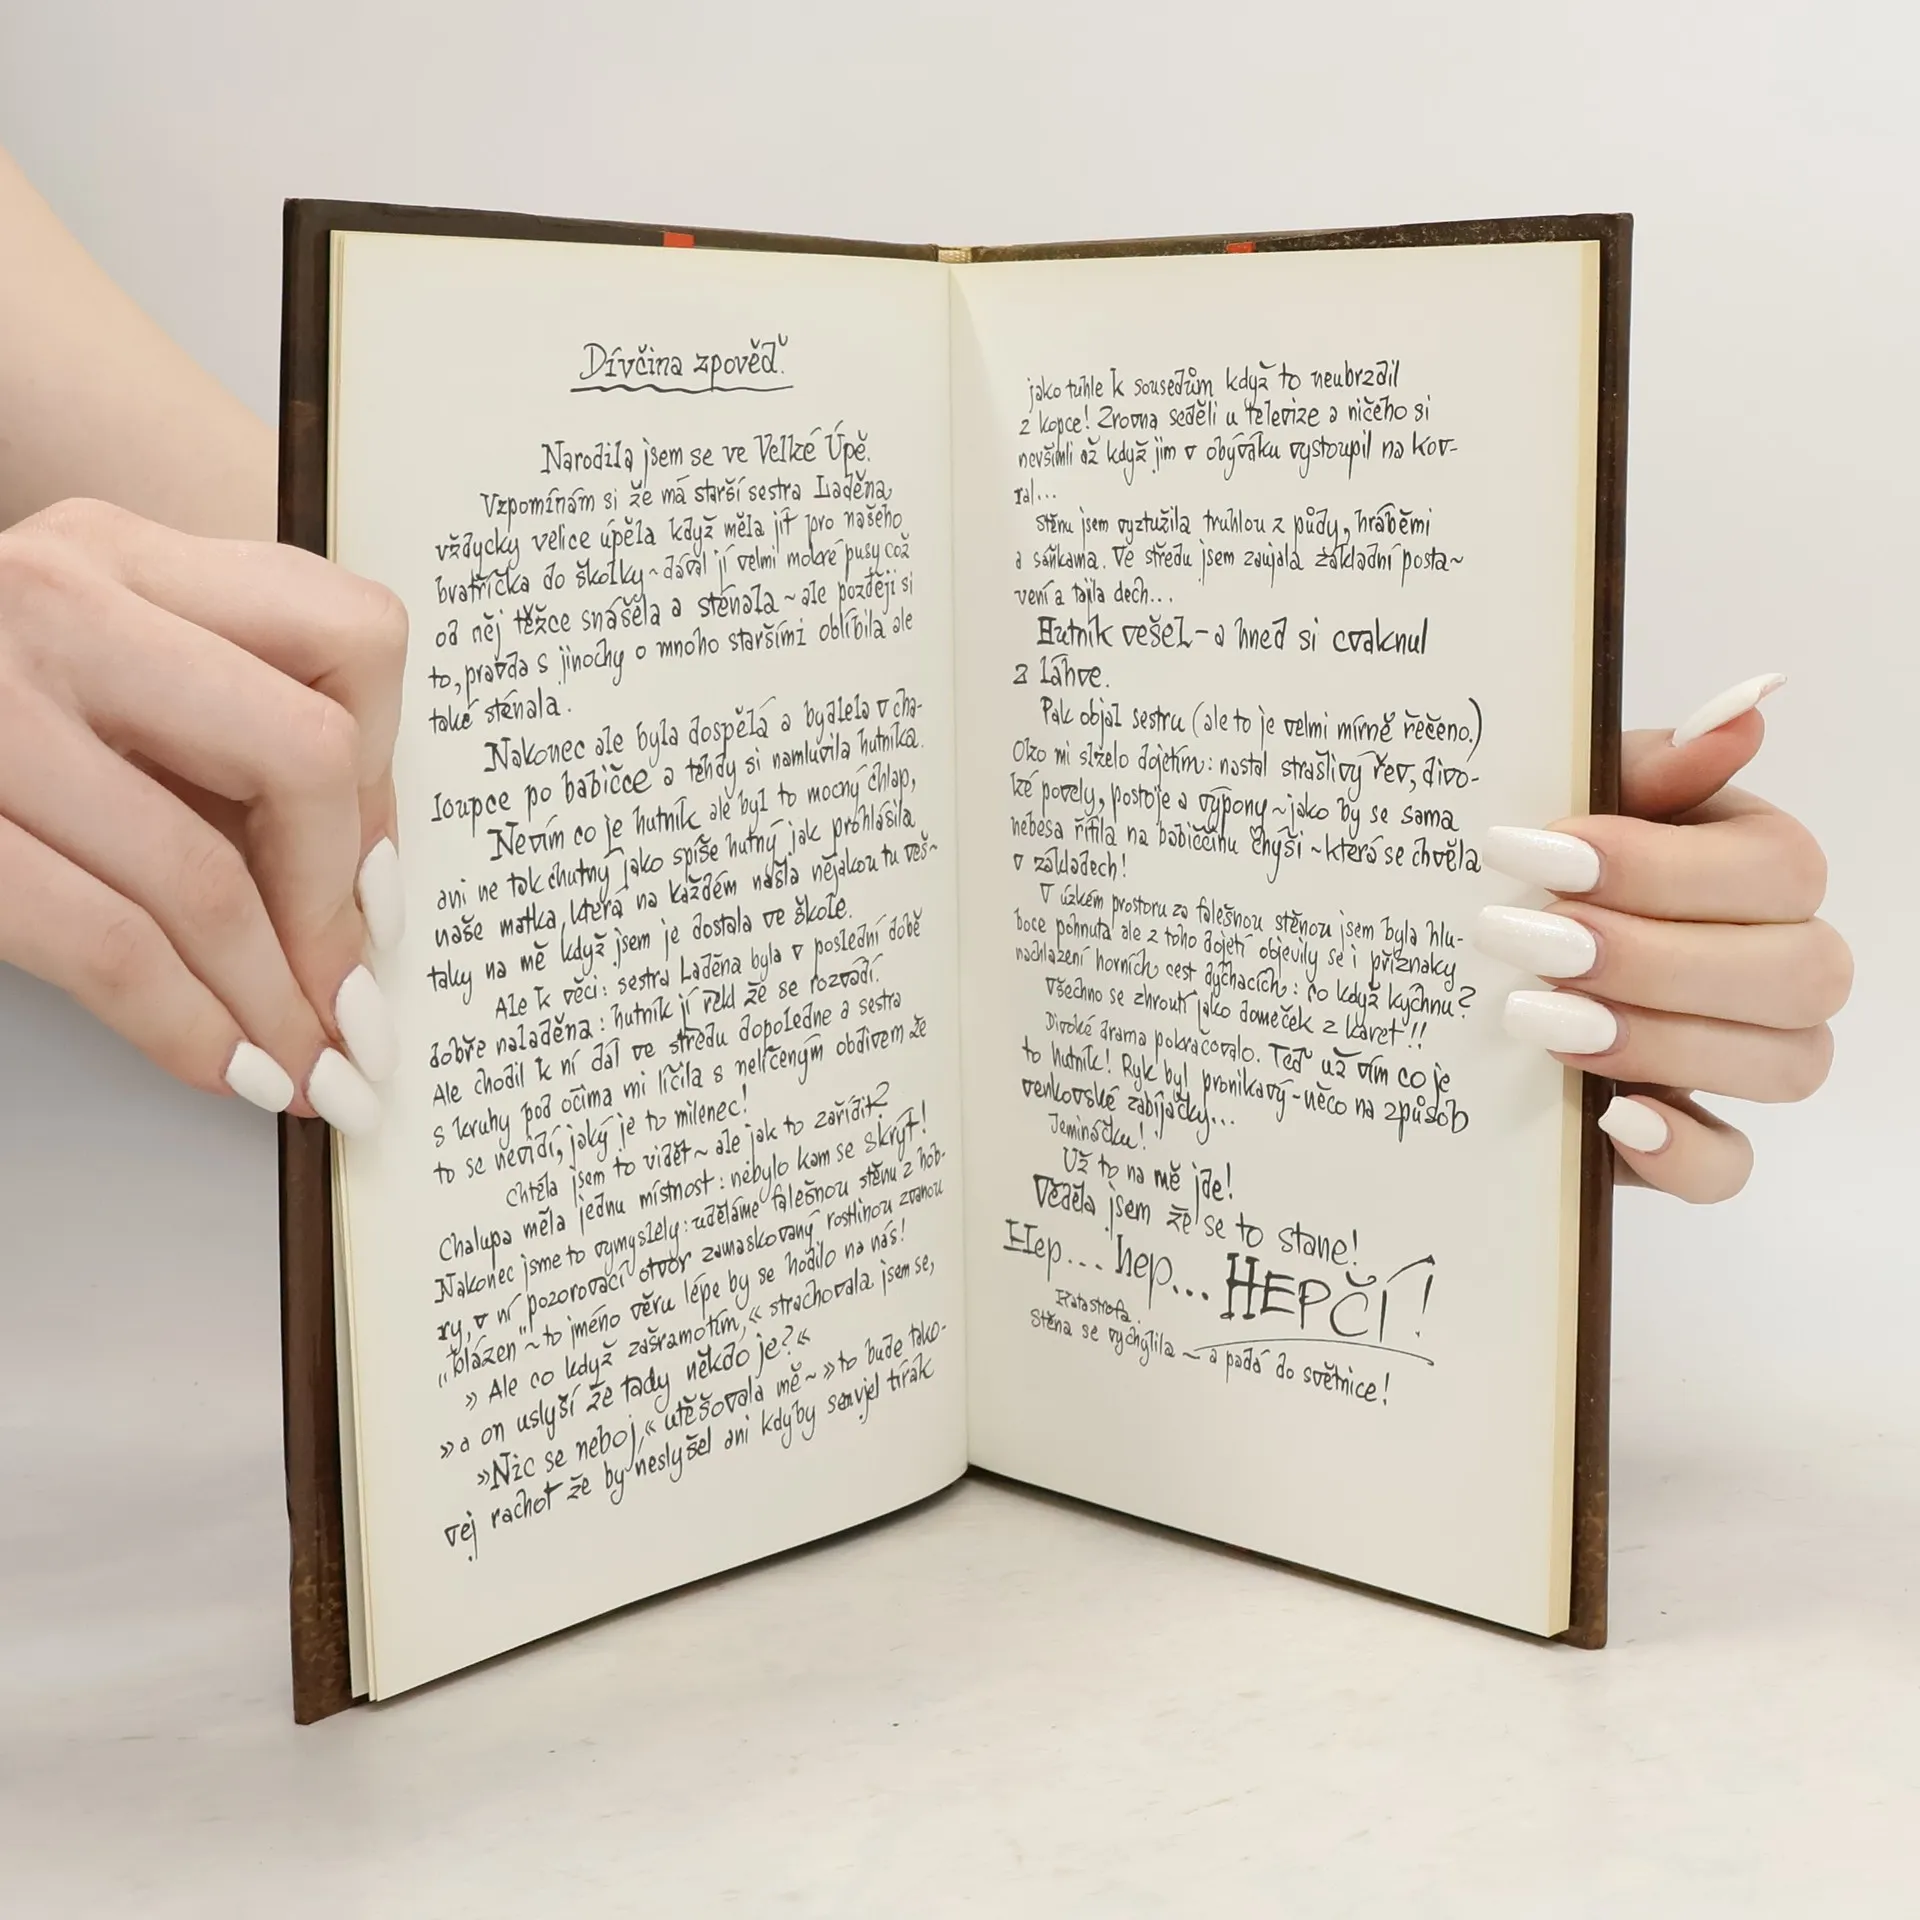 Dívčina zpověď.
Narodila jsem se ve Velké Úpě.
Vzpomínám si že má starší sestra Laděna
vždycky velice úpěla když měla jít pro našeho
bratříčka do školky ~ dával jí velmi mokré pusy což
od něj těžce snášela a sténala ~ ale později si
to, pravda s jinochy o mnoho staršími oblíbila ale
také sténala.
Nakonec ale byla dospělá a bydlela v cha-
loupce po babičce a tehdy si namluvila hutníka.
Nevím co je hutník ale byl to mocný chlap,
ani ne tak chutný jako spíše hutný jak prohlásila
naše matka, která na každém našla nějakou tu veš ~
taky na mě když jsem je dostala ve škole.
Ale k věci: sestra Laděna byla v poslední době
dobře naladěna: hutník jí řekl že se rozvádí.
Ale chodil k ní dál ve středu dopoledne a sestra
s kruhy pod očima mi líčila s nelíčeným obdivem že
to se nevidí, jaký je to milenec!
Chtěla jsem to vidět ~ ale jak to zařídit?
Chalupa měla jednu místnost: nebylo kam se skrýt!
Nakonec jsme to vymyslely: uděláme falešnou stěnu z hob-
ry, v ní pozorovací otvor zamaskovaný rostlinou zvanou
„blázen" ~ to jméno věru lépe by se hodilo na nás!
» Ale co když zašramotím, « strachovala jsem se,
» a on uslyší že tady někdo je? «
» Nic se neboj, « utěšovala mě ~ » to bude tako-
vej rachot že by neslyšel ani kdyby senvjel tirák
jako tuhle k sousedům když to neubrzdil
z kopce! Zrovna seděli u televize a ničeho si
nevšimli až když jim v obýváku vystoupil na kov-
ral...
Stěnu jsem vyztužila truhlou z půdy, hráběmi
a sáňkama. Ve středu jsem zaujala základní posta~
vení a tajila dech...
Hutník vešel - a hned si cvaknul
z láhve.
Pak objal sestru (ale to je velmi mírně řečeno.)
Oko mi slzelo dojetím: nastal strašlivý řev, divo-
ké povely, postoje a výpony ~ jako by se sama
nebesa řítila na babiččinu chýši ~ která se chvěla
v základech!
V úzkém prostoru za falešnou stěnou jsem byla hlu-
boce pohnuta ale z toho dojetí objevily se i příznaky
nachlazení horních cest dýchacích: co když kýchnu?
Všechno se zhroutí jako domeček z karet!!
Divoké drama pokračovalo. Teď už vím co je
to hutník! Ryk byl pronikavý - něco na způsob
venkovské zabíjačky...
Jemináčku!
Už to na mě jde!
Věděla jsem že se to stane!
Hep... hep... HEPČÍ!
Katastrofa.
Stěna se vychýlila ~ a padá do světnice!